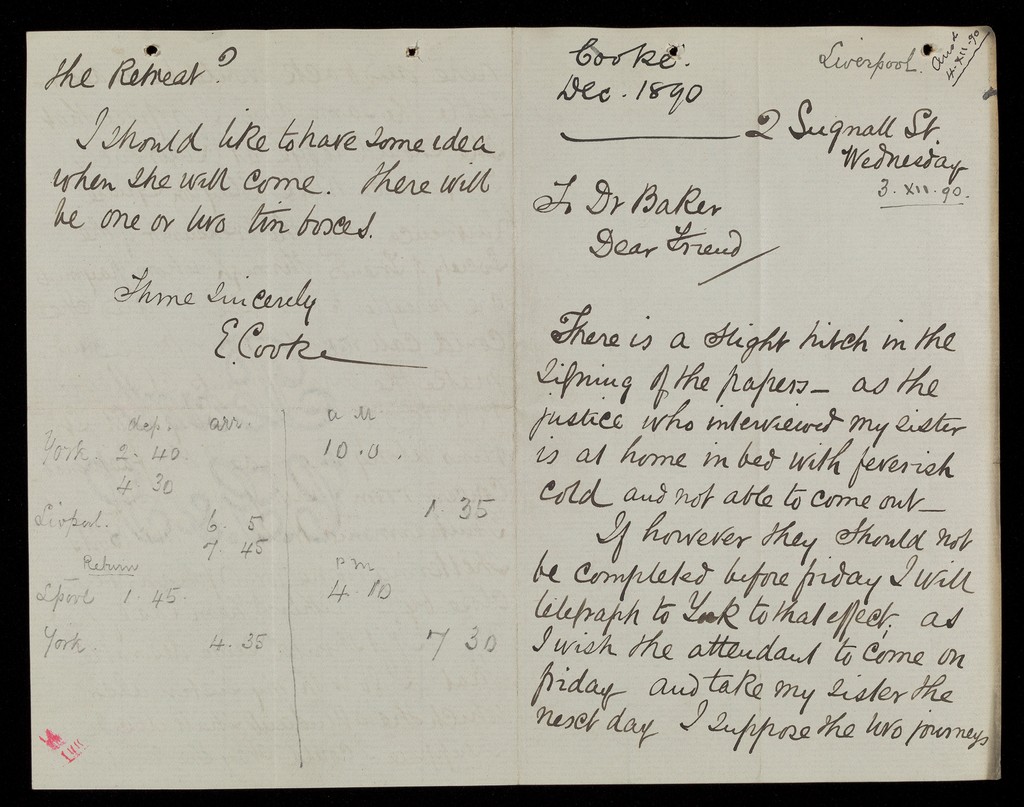 the Retreat?
I should like to have some idea
when she will come. There will
be one or two tin boxes.
Thine Sincerely
E. Cooke
dep. arr. a M
York. 2. 40. 10. 0.
4. 30
Livpool. 6. 5 1. 35
7. 45
Return P M
Lpool 1. 45. 4. 10
York. 4. 35 7 30
1411
Cooke.
Dec. 1890
Liverpool.
Ansd
4. XII. 90
2 Sugnall St.
Wednesday
3. XII. 90.
To Dr Baker
Dear Friend
There is a slight hitch in the
signing of the papers — as the
justice who interviewed my sister
is at home in bed with feverish
cold and not able to come out —
If however they should not
be completed before friday I will
telegraph to York to that effect, as
I wish the attendant to come on
friday and take my sister the
next day I suppose the two journeys